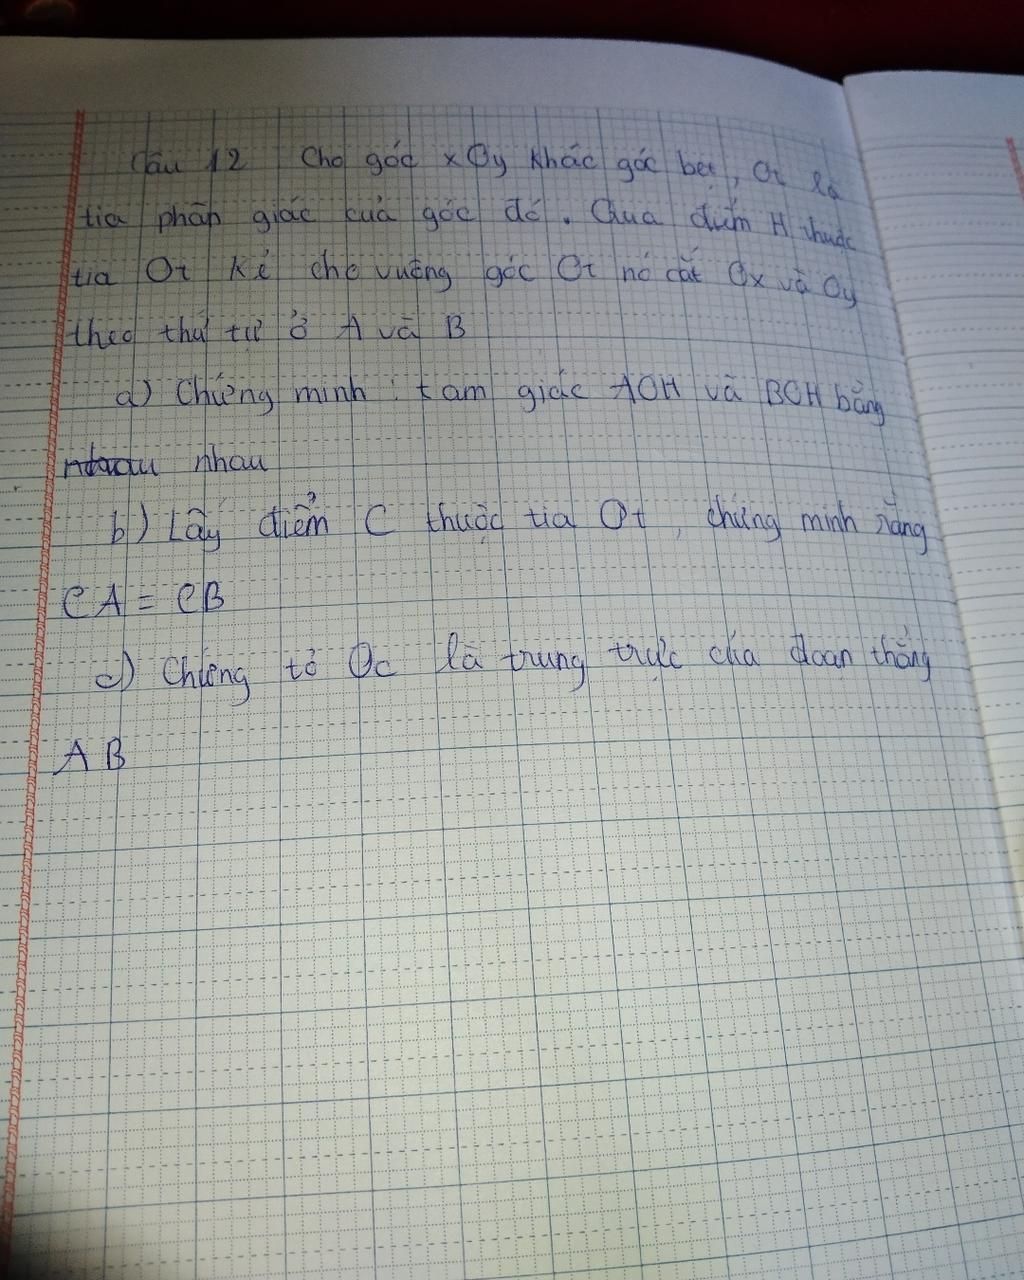 Câu 12 Cho góc xOy khác góc bẹt, Ot là
tia phân giác của góc đó. Qua điểm H thuộc
tia Ot kẻ cho vuông góc Ot nó cắt Ox và Oy
theo thứ tự ở A và B
a) Chứng minh : tam giác AOH và BOH bằng
nhau
b) Lấy điểm C thuộc tia Ot, chứng minh rằng
CA = CB
c) Chứng tỏ Oc là trung trực của đoạn thẳng
AB